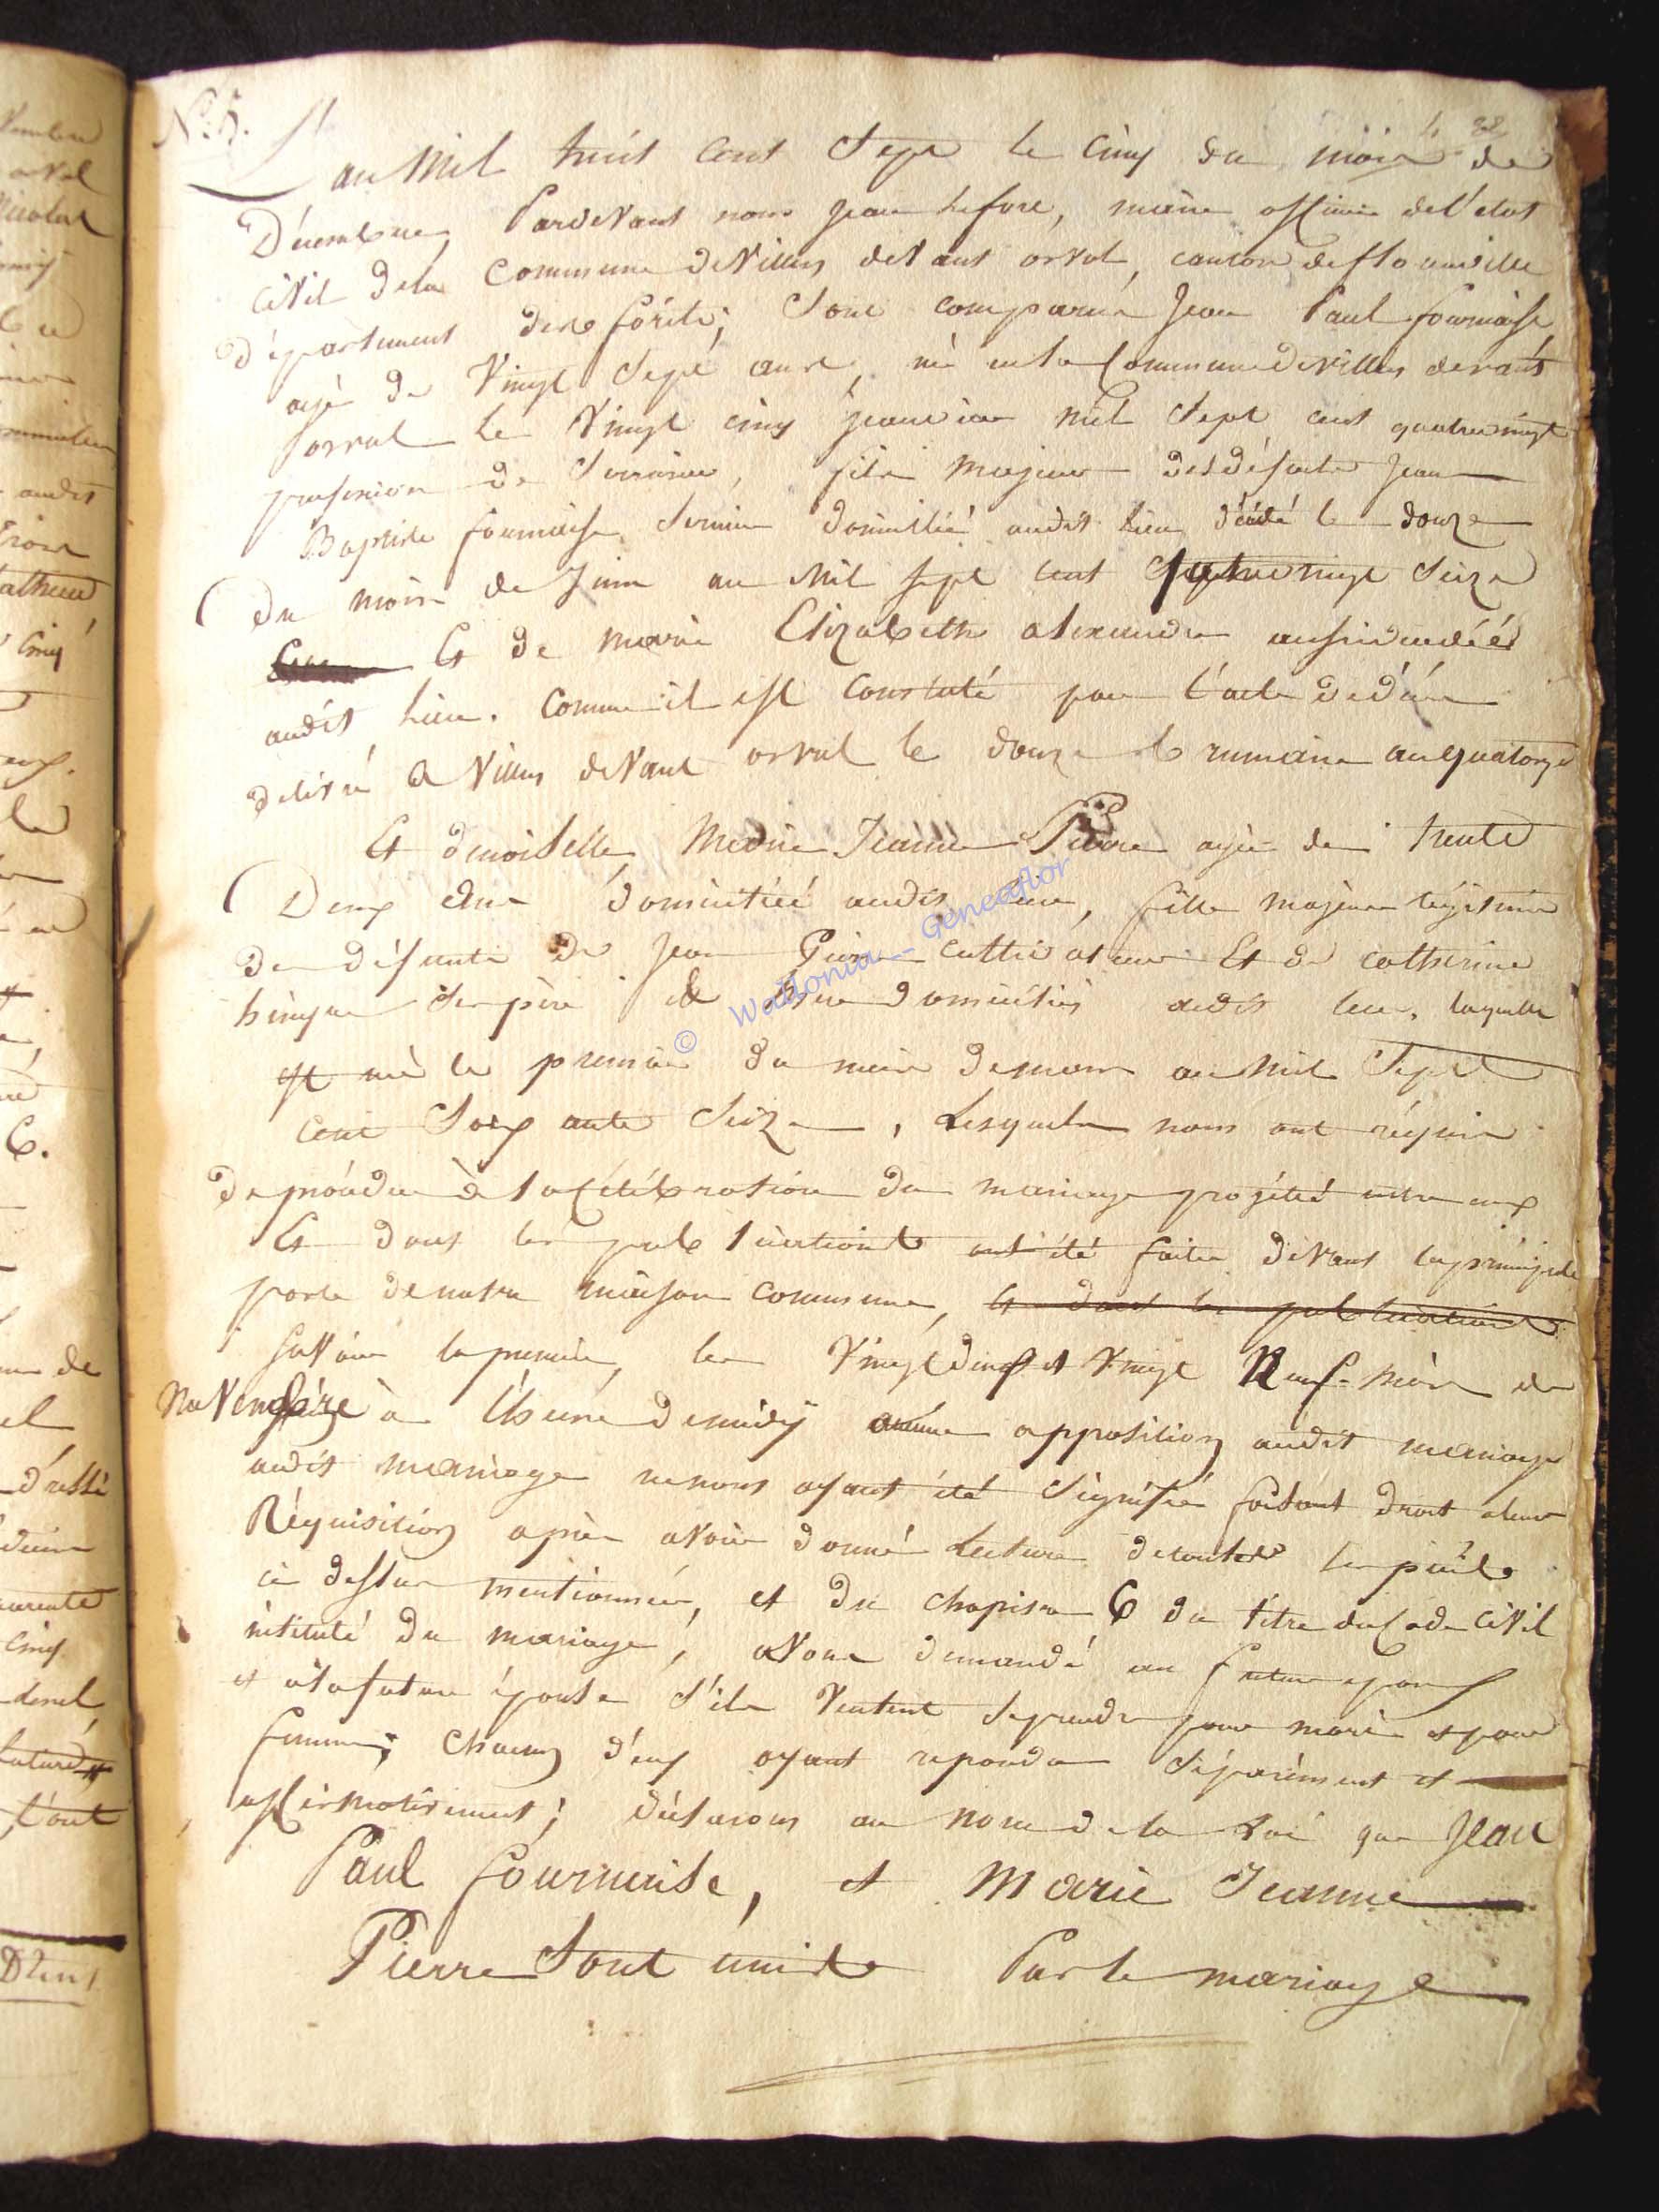 N.° 5.
L'an Mil huit cent Sept le cinq du mois de
Décembre, Pardevant nous Jean Lefore, maire officier de l'etat
civil dela commune de Villers devant orval, canton de florenville
département des forêts; Sont comparus Jean Paul fournaise
agé de Vingt Sept ans, né en la Commune de villers devant
orval le Vingt cinq janvier mil Sept cent quatrevingt
profession de Serrurier, fils majeur des défunts Jean
Baptiste fournaise Serrurier domicilié audit lieu décédé le douze
du mois de Juin an Mil sept cent quatrevingt Seize
Et de marie Elizabeth alexandre aussi décédéé
audit lieu. Comme il est constaté par l'acte de décès
delivré a Villers devant orval le douze brumaire an quatorze
Et demoiselle Marie Jeanne Pierre agée de trente
Deux Ans domiciliéé audit lieu, fille majeure légitime
de défunts de Jean Pierre cultivateur Et de catherine
ses père et mere domiciliés audit lieu, laquelle
est née le premier du mois de mars an Mil Sept
cent Soixante Seize, Lesquels nous ont réquis
de procéder à la Célébration du mariage projété entre eux
Et dont les publications ont été faites dévant la principale
porte de notre maison commune, et dont les publications
savoir la premiere, les Vingt deux et Vingt Neuf mois de
Novembre à l'heure de midÿ aucune opposition audit mariage
audit mariage ne nous ayant été Signifié faisant droit a leur
Réquisition après avoir donné Lecture de toutes les pièces
ci dessus mentionnées, et du chapitre 6 du titre du Code Civil
intitulé du mariage, avons demandé au futur epoux
et à la future épouse S'ils Veulent Se prendre pour mari et pour
femme; chacun d'eux ayant repondu Séparément et
affirmativement; déclarons au nom de la Loi que Jean
Paul fournaise, et Marie Jeanne
Pierre Sont unis Par le mariage
© Wallonia - Geneaflor